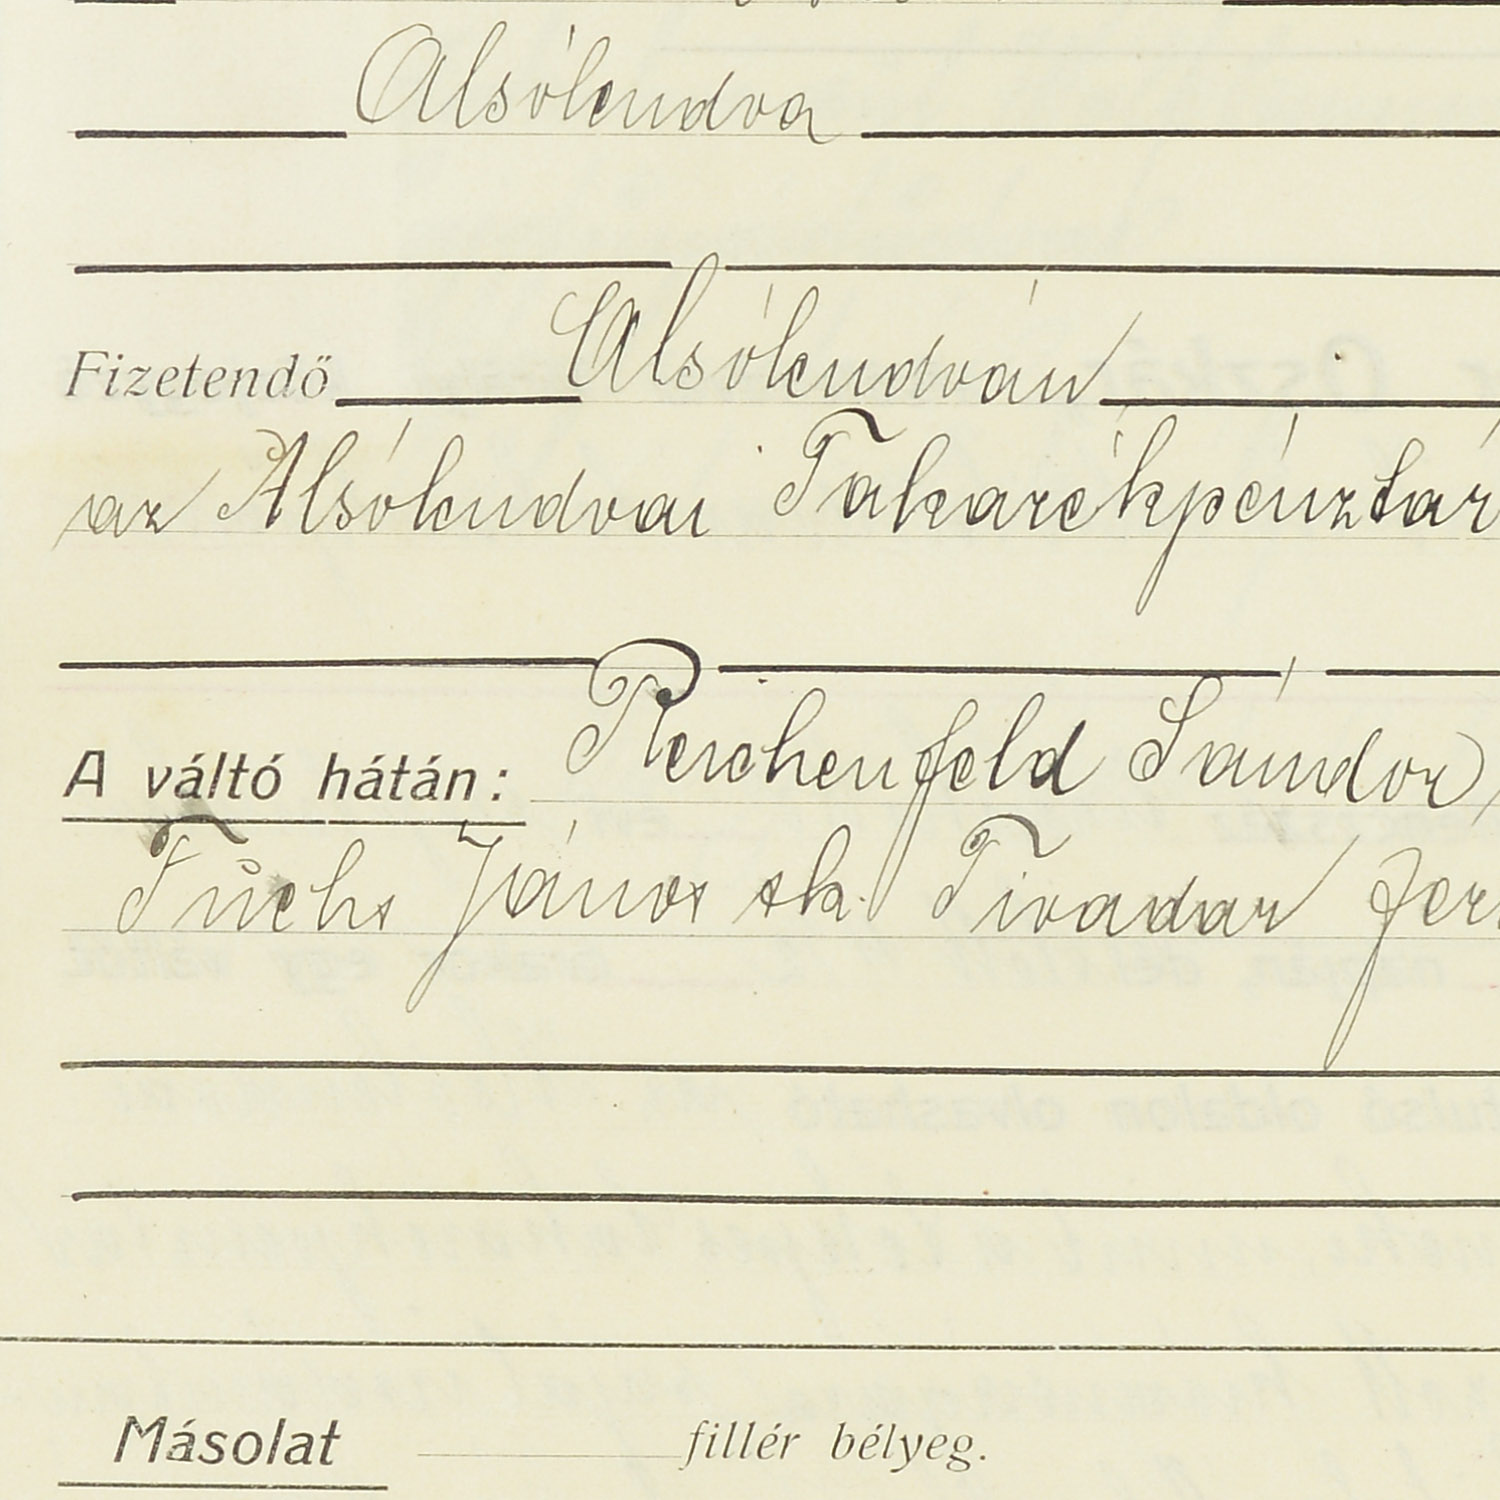 Alsólendva
Fizetendő Alsólendván
az Alsólendvai Takarékpénztár
A váltó hátán: Reichenfeld Sándor
Fuchs János sk. Tivadar
Másolat fillér bélyeg.